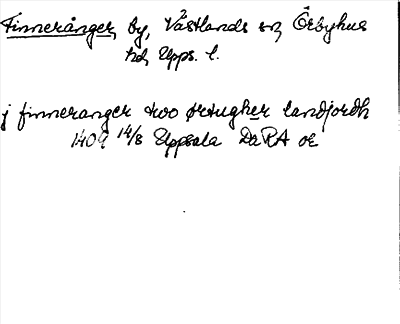 Finneränger, by, Västlands sn, Örbyhus
hd, Upps. l.
j finneranger twoo ørtugher landjordh
1409 14/8 Uppsala DaRA or